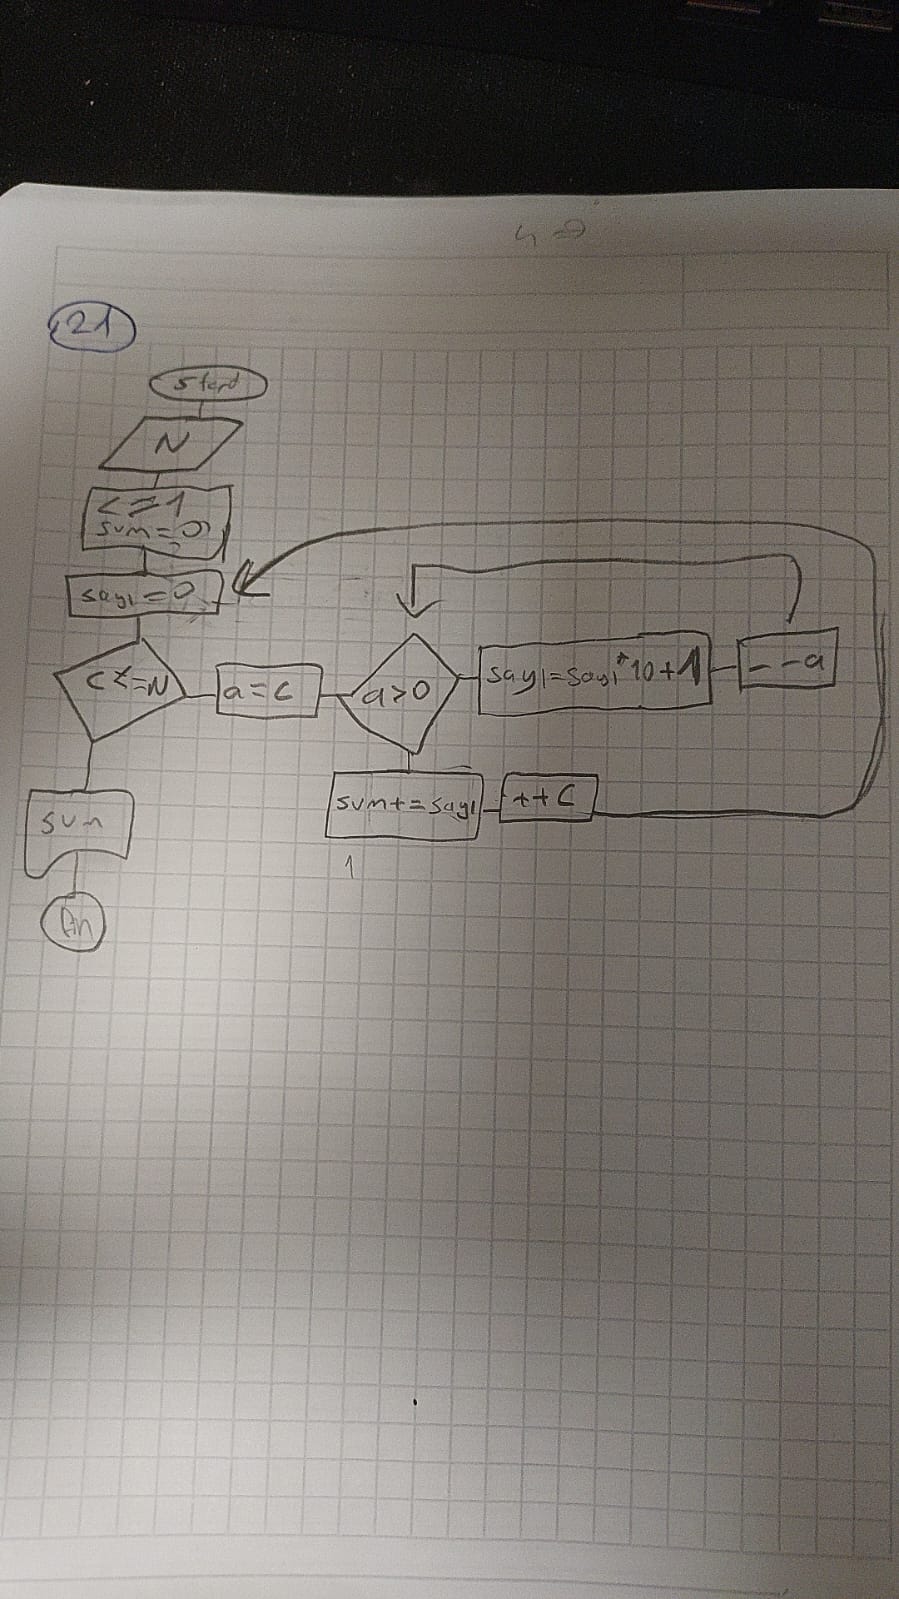 21
Start
N
C=1
sum=0
sayı=0
C<=N
a=C
a>0
sayı=sayı*10+1
--a
sum+=sayı
++C
sum
1